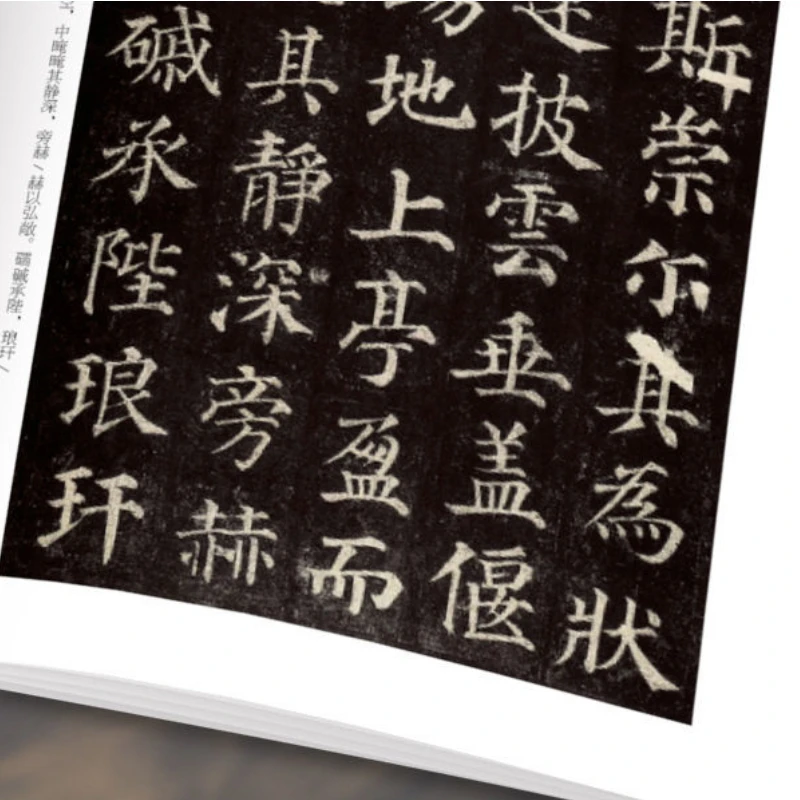 斯崇尔其為狀
披雲垂盖偃
地上亭盈而
其靜深旁赫
磩承陛琅玕
中晻晻其静深，旁赫/赫以弘敞。礝磩承陛，琅玕/